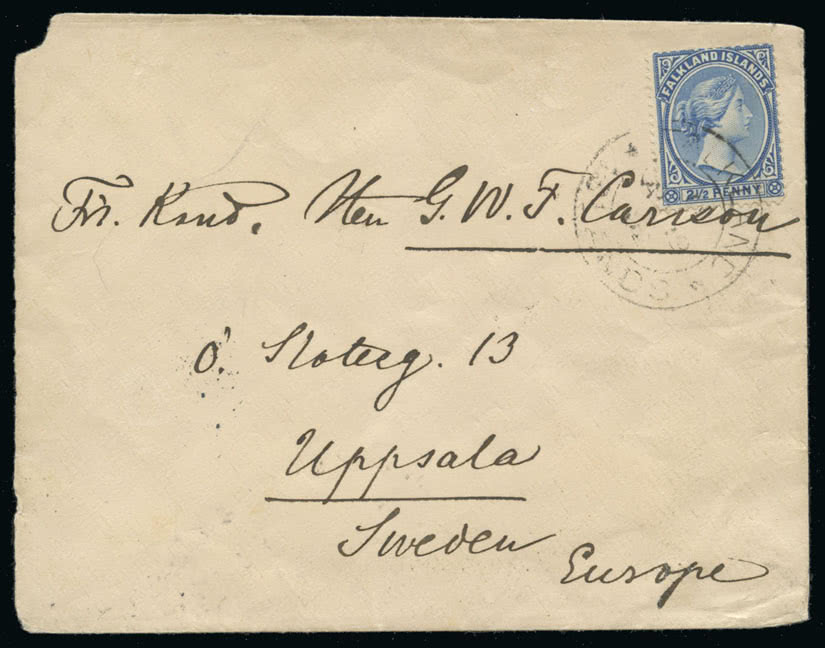 FALKLAND ISLANDS
2½ PENNY
Fil. Kand. Herr G. W. F. Carlson
Ö. Slotsg. 13
Uppsala
Sweden
Europe